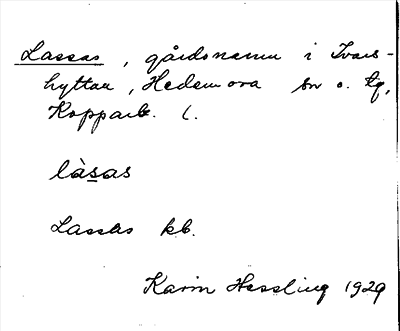 Lassas, gårdsnamn i Ivars-
hyttan, Hedemora sn o. tg,
Kopparb. l.
làsas
Lassas kb.
Karin Hessling 1929